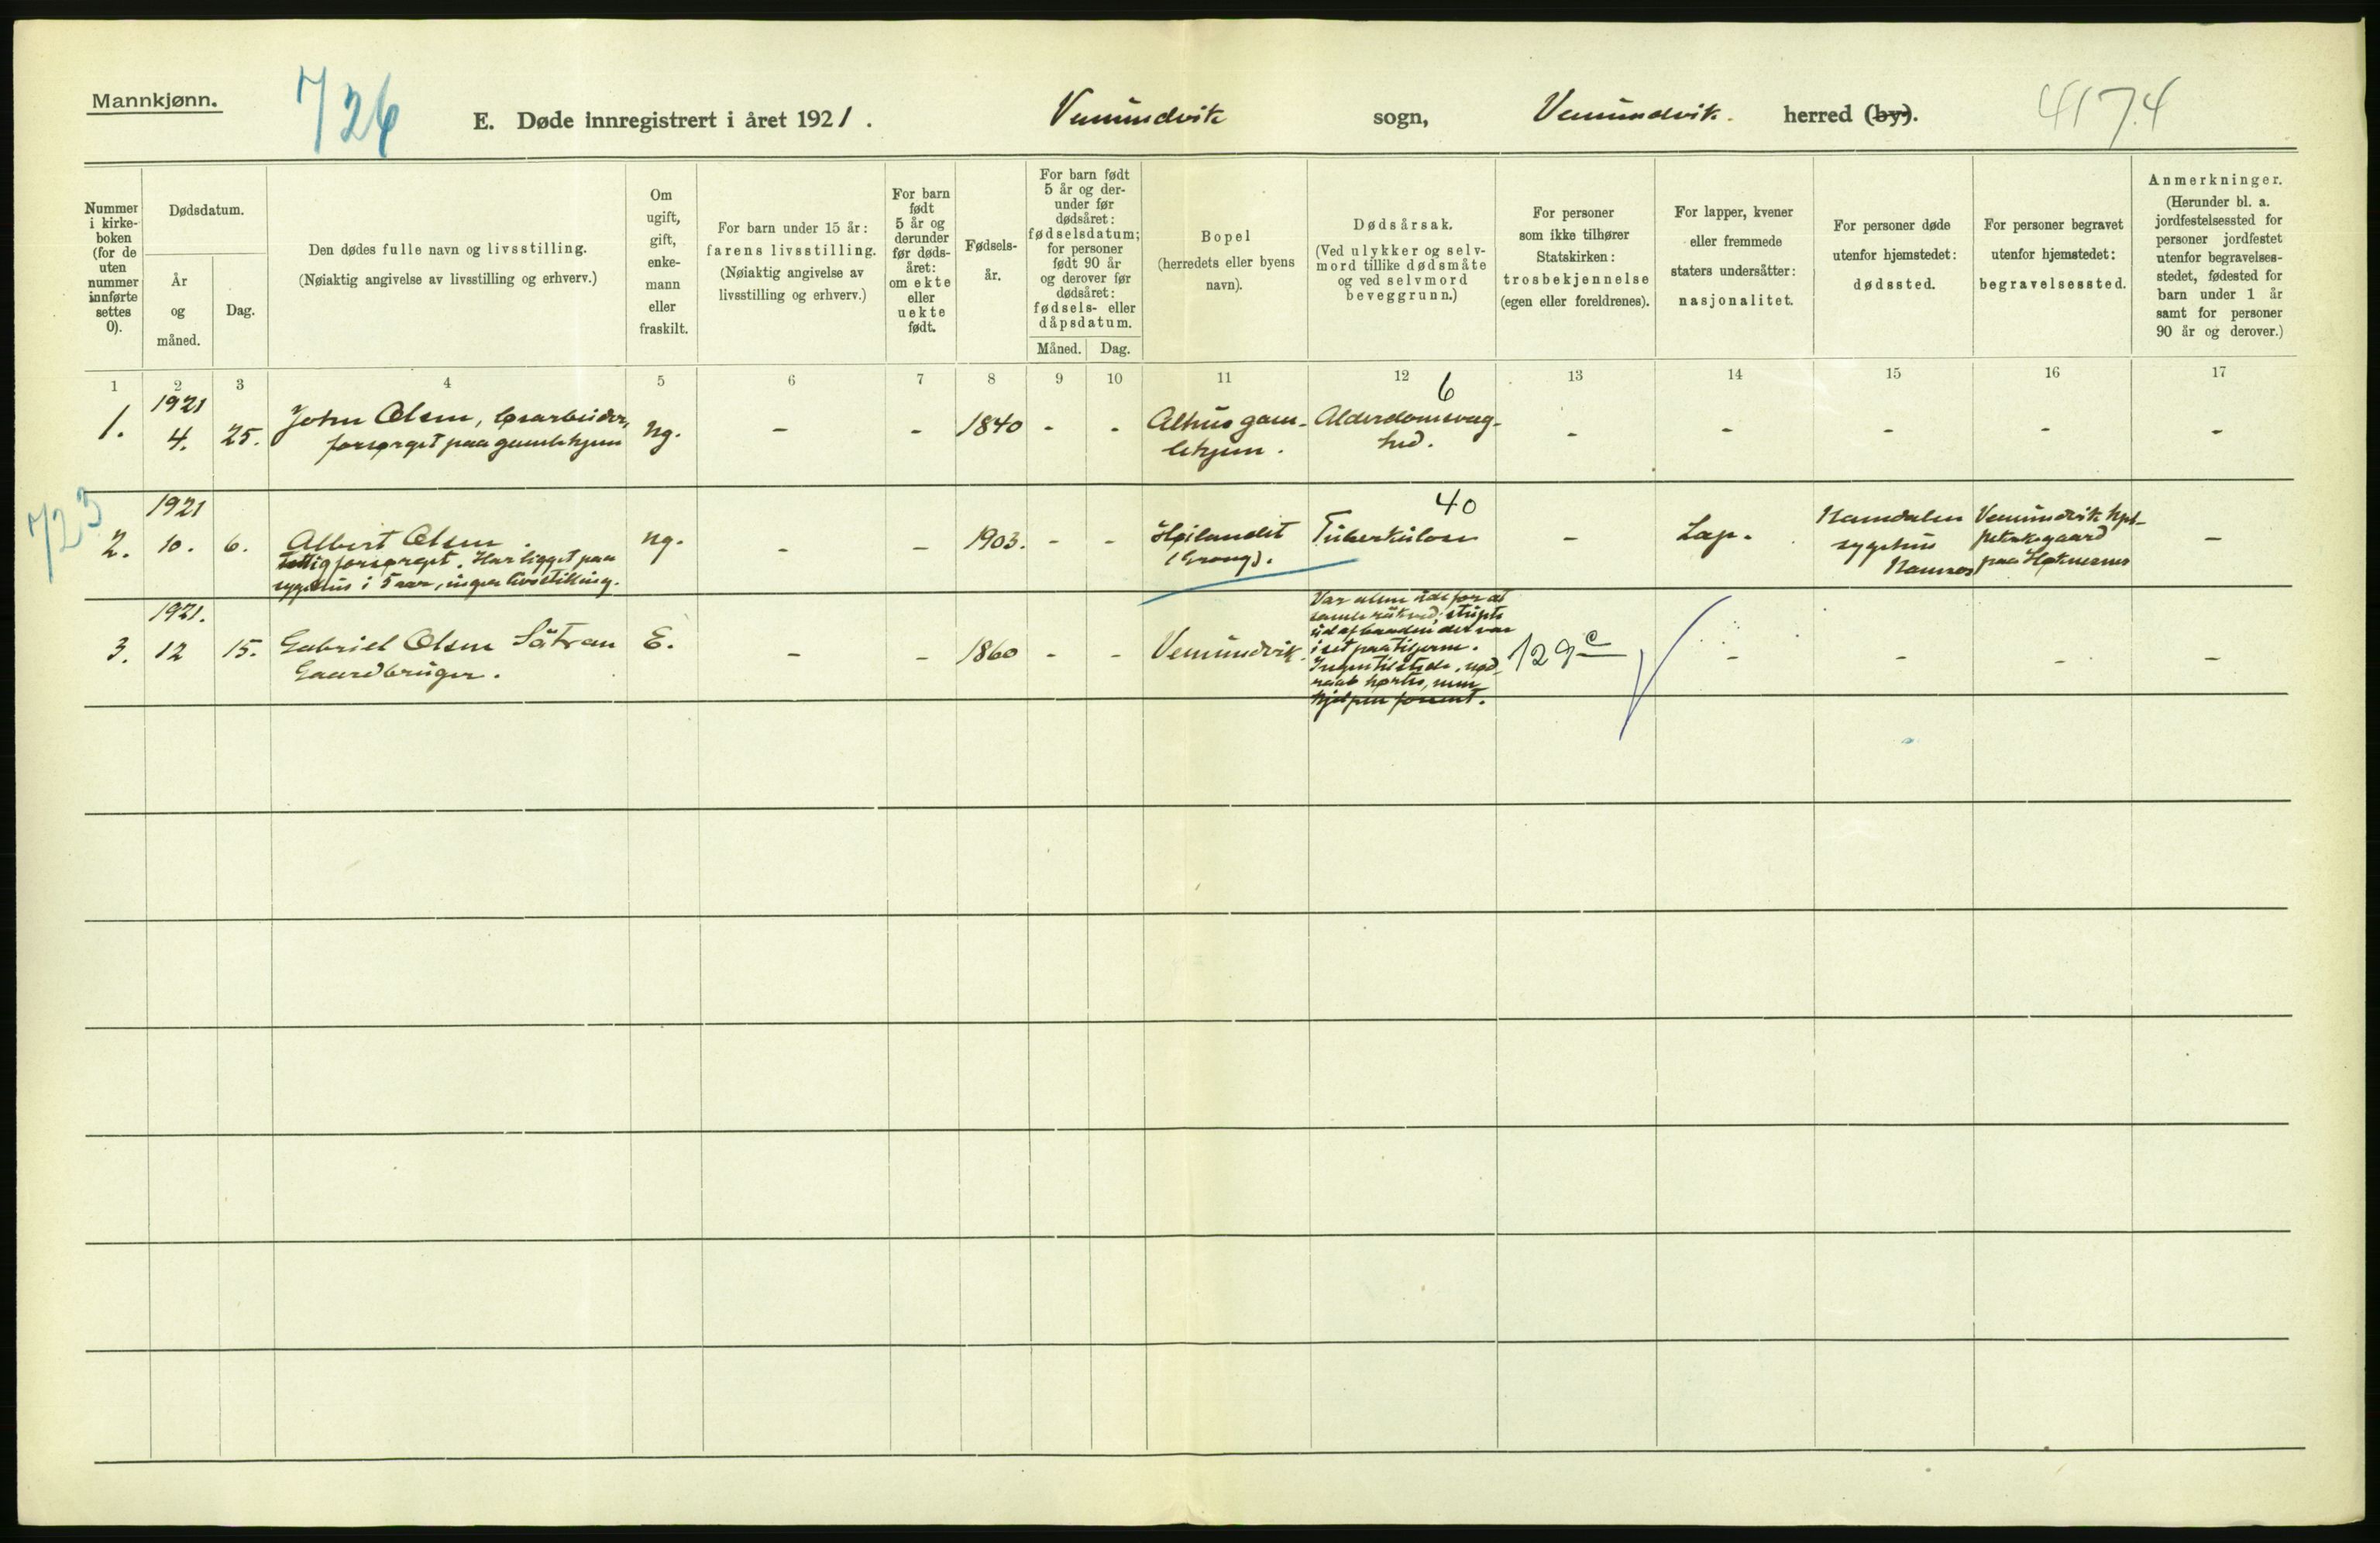 Mannkjønn.
726
E. Døde innregistrert i året 1921.
Vemundvik sogn, Vemundvik. herred (by).
417.4
Nummer i kirkeboken (for de uten nummer innførte settes 0).
Dødsdatum.
År og måned.
Dag.
Den dødes fulle navn og livsstilling.
(Nøiaktig angivelse av livsstilling og erhverv.)
Om ugift, gift, enkemann eller fraskilt.
For barn under 15 år:
farens livsstilling.
(Nøiaktig angivelse av livsstilling og erhverv.)
For barn født 5 år og derunder før dødsåret: om ekte eller uekte født.
Fødselsår.
For barn født 5 år og derunder før dødsåret: fødselsdatum; for personer født 90 år og derover før dødsåret: fødsels- eller dåpsdatum.
Måned. Dag.
Bopel
(herredets eller byens navn).
Dødsårsak.
(Ved ulykker og selvmord tillike dødsmåte og ved selvmord beveggrunn.)
For personer som ikke tilhører Statskirken:
trosbekjennelse
(egen eller foreldrenes).
For lapper, kvener eller fremmede staters undersåtter:
nasjonalitet.
For personer døde utenfor hjemstedet:
dødssted.
For personer begravet utenfor hjemstedet:
begravelsessted.
Anmerkninger.
(Herunder bl. a. jordfestelsessted for personer jordfestet utenfor begravelsesstedet, fødested for barn under 1 år samt for personer 90 år og derover.)
1 2 3 4 5 6 7 8 9 10 11 12 13 14 15 16 17
1. 1921 4. 25.
John Olsen, løsarbeider,
forsørget paa gamlehjem
ug. - - 1840 - -
Althus gam-
lehjem.
6
Alderdomsvag-
hed.
- - - - -
723
2. 1921 10. 6.
Albert Olsen.
Fattigforsørget. Har ligget paa
sygehus i 5 aar, ingen livsstilling.
ug. - - 1903. - -
Høilandet
(Grong).
40
Tuberkulose
- Lap.
Namdalen
sygehus
Namsos
Vemundvik
paa
-
3. 1921. 12 15.
Gabriel Olsen Sætran
Gaardbruger.
E. - - 1860 - -
Vemundvik.
Var alene ude for at
samle rækved, stupte
ud af baaden det var
iset paa tiljerne.
Ingen tilstede, nød-
raab hørtes, men
hjelpen forsent.
129 c
- - - -